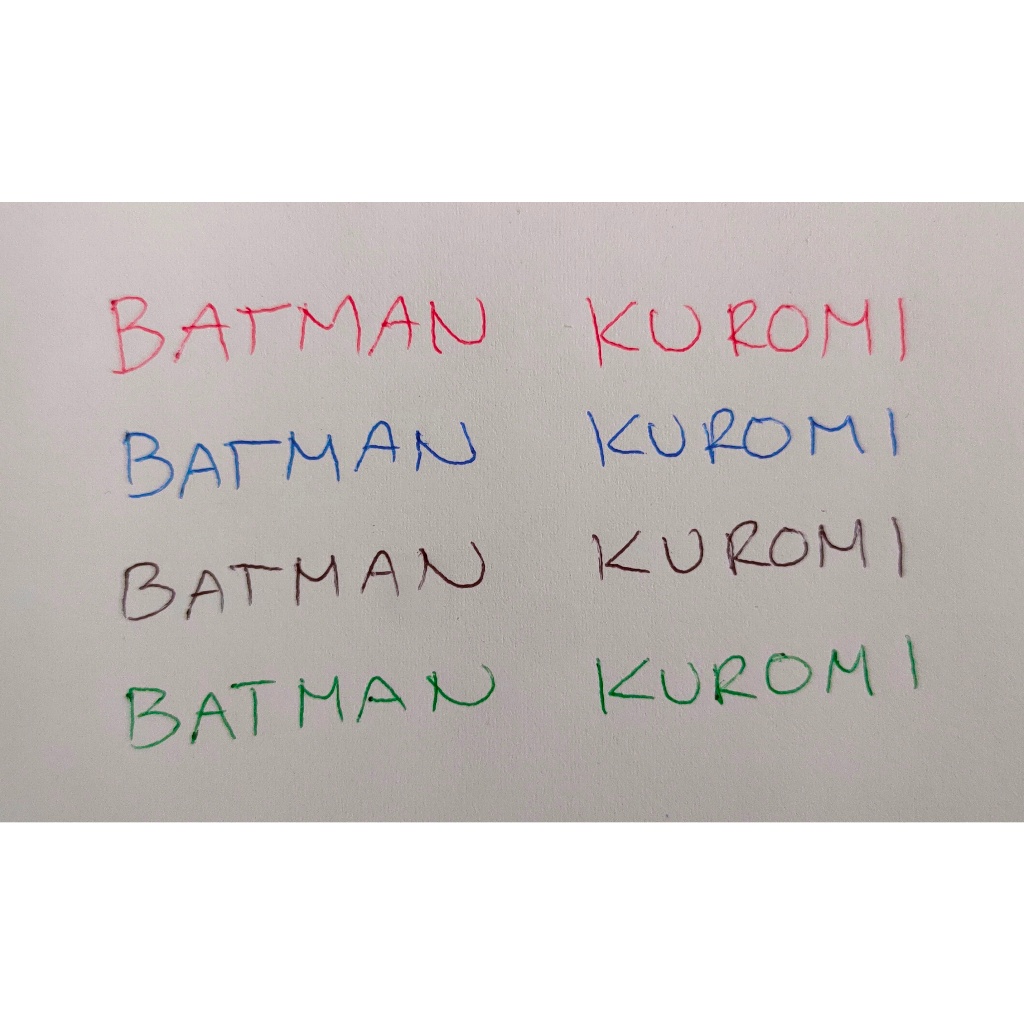 BATMAN KUROMI
BATMAN KUROMI
BATMAN KUROMI
BATMAN KUROMI